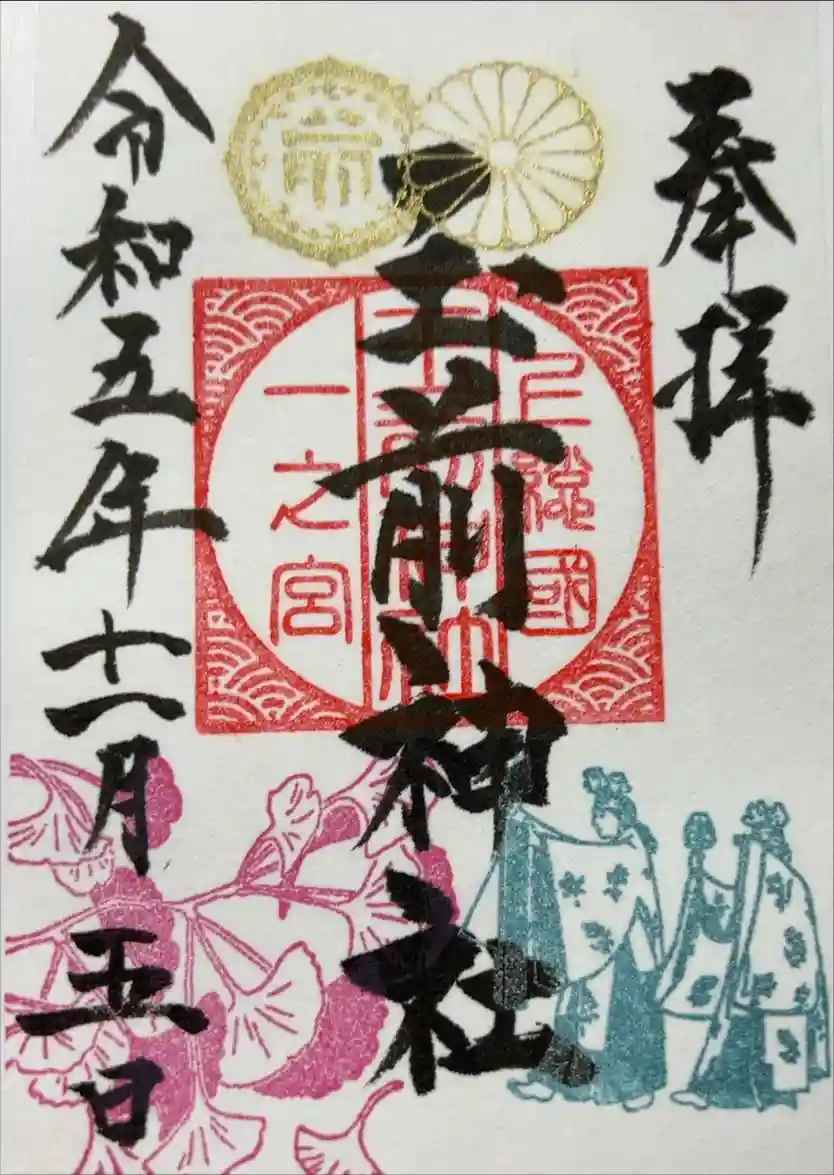 奉拝
上総國
玉前神社
一之宮
玉前神社
令和五年十一月五日